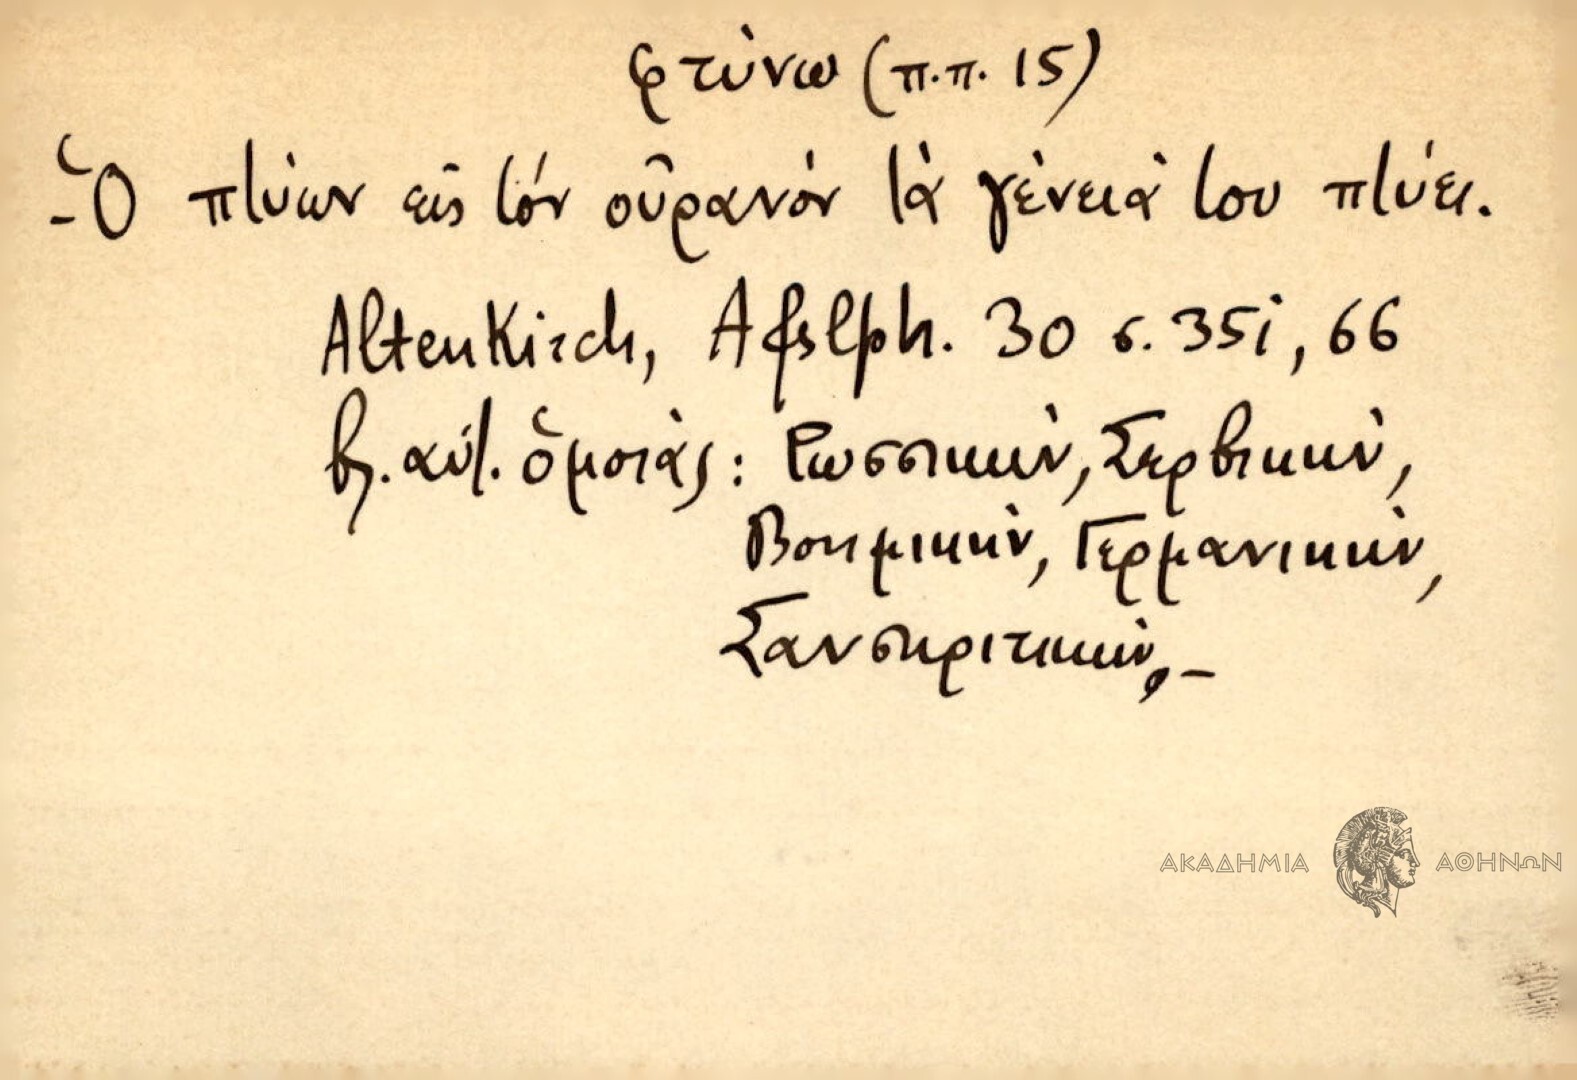 φτύνω (π.π. 15)
- Ὁ πτύων εἰς τόν οὐρανόν τὰ γένειά του πτύει.
Altenkirch, Afslph. 30 σ. 351, 66
βλ. αὐτ. ὁμοιάς: Ρωσσικήν, Σερβικήν,
Βοημικήν, Γερμανικήν,
Σανσκριτικήν,-
ΑΚΑΔΗΜΙΑ ΑΘΗΝΩΝ